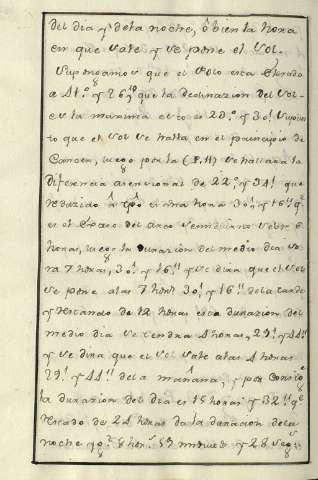 del dia y dela noche, ô bien la hora
en que sale y se pone el Sol.
Supongamos que el Polo esta elevado
a 41.º y 26' que la declinazion del Sol
es la maxima esto es 23.º y 30' supues
to que el Sol se halla en el principio de
Cancer, luego por la (P. 11) se hallará la
diferencia ascensional de 22.º y 34' que
reduzido â tpô es una hora 30' y 16'' q.e
es el Exceso del arco semidiurno sobre 6
horas, luego la durazion del medio dia se
ra 7 horas, 30' y 16'' y se dira que el Sol
se pone a las 7 hor.s 30' y 16'' dela tarde
y restando de 12 horas esta durazion del
medio dia se tendra 4 horas, 29' y 44''
y se dira que el Sol sale a las 4 horas
29' y 44'' dela mañana, y por consig.e
la durazion del dia es 15 horas y 32'' q.e
restado de 24 horas da la durazion dela
noche q.e 8 hor.s 59 minutos y 28 seg.s